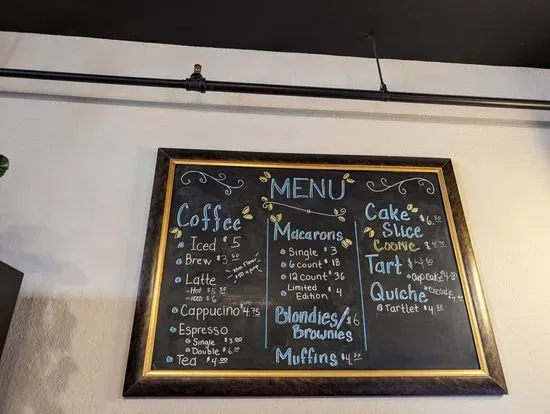 MENU
Coffee
Iced $5
Brew $3.50
Latte
Hot $5.50
Iced $6
Cappucino $4.75
Espresso
Single $3.00
Double $6.00
Tea $4.00
Macarons
Single $3
6 count $18
12 count $36
Limited $4
Edition
Blondies/ $6
Brownies
Muffins $4.50
Cake $6.50
Slice
Cookie $4.75
Tart $4.50
Cupcake
Quiche
Tartlet $4.50